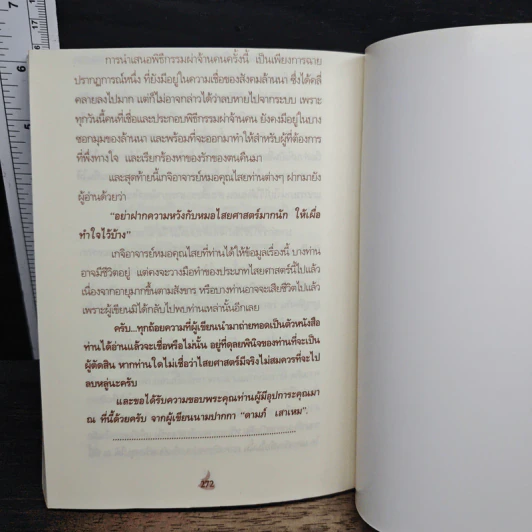 การนำเสนอพิธีกรรมฝ่าจ้านคนครั้งนี้ เป็นเพียงการฉาย
ปรากฏการณ์หนึ่ง ที่ยังมีอยู่ในความเชื่อของสังคมล้านนา ซึ่งได้คลี่
คลายลงไปมาก แต่ก็ไม่อาจกล่าวได้ว่าลบหายไปจากระบบ เพราะ
ทุกวันนี้คนที่เชื่อและประกอบพิธีกรรมฝ่าจ้านคน ยังคงมีอยู่ในบาง
ซอกมุมของล้านนา และพร้อมที่จะออกมาทำให้สำหรับผู้ที่ต้องการ
ที่พึ่งทางใจ และเรียกร้องหาของรักของตนคืนมา
และสุดท้ายนี้เกจิอาจารย์หมอคุณไสยท่านต่างๆ ฝากมายัง
ผู้อ่านด้วยว่า
"อย่าฝากความหวังกับหมอไสยศาสตร์มากนัก ให้เผื่อ
ทำใจไว้บ้าง"
เกจิอาจารย์หมอคุณไสยที่ท่านได้ให้ข้อมูลเรื่องนี้ บางท่าน
อาจมีชีวิตอยู่ แต่คงจะวางมือทำของประเภทไสยศาสตร์นี้ไปแล้ว
เนื่องจากอายุมากขึ้นตามสังขาร หรือบางท่านอาจจะเสียชีวิตไปแล้ว
เพราะผู้เขียนมิได้กลับไปพบท่านเหล่านั้นอีกเลย
ครับ...ทุกถ้อยความที่ผู้เขียนนำมาถ่ายทอดเป็นตัวหนังสือ
ท่านได้อ่านแล้วจะเชื่อหรือไม่นั้น อยู่ที่ดุลยพินิจของท่านที่จะเป็น
ผู้ตัดสิน หากท่านใดไม่เชื่อว่าไสยศาสตร์มีจริงไม่สมควรที่จะไป
ลบหลู่นะครับ
และขอได้รับความขอบพระคุณท่านผู้มีอุปการะคุณมา
ณ ที่นี้ด้วยครับ จากผู้เขียนนามปากกา "ตามภ์ เสาเหม".
272
7